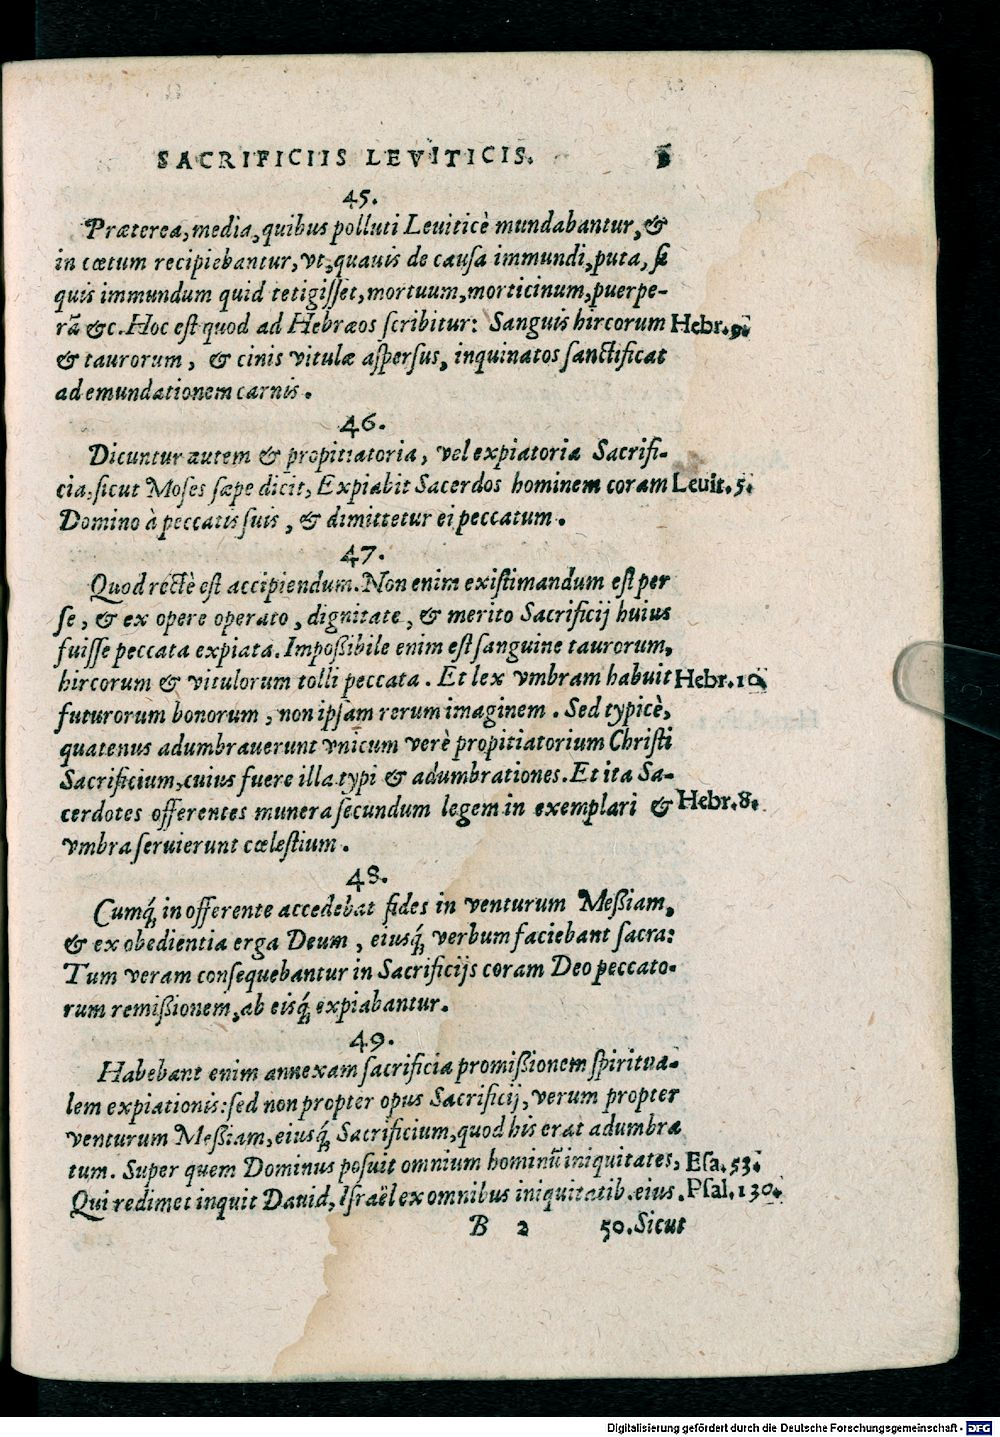 SACRIFICIIS LEVITICIS.
45.
Præterea, media, quibus polluti Leuiticè mundabantur, &
in cœtum recipiebantur, vt, quauis de causa immundi, puta, si
quis immundum quid tetigisset, mortuum, morticinum, puerpe-
rã &c. Hoc est quod ad Hebræos scribitur: Sanguis hircorum Hebr. 9.
& taurorum, & cinis vitulæ aspersus, inquinatos sanctificat
ad emundationem carnis.
46.
Dicuntur autem & propitiatoria, vel expiatoria Sacrifi-
cia, sicut Moses sæpe dicit, Expiabit Sacerdos hominem coram Leuit. 5.
Domino à peccatis suis, & dimittetur ei peccatum.
47.
Quod rectè est accipiendum. Non enim existimandum est per
se, & ex opere operato, dignitate, & merito Sacrificij huius
fuisse peccata expiata. Impoßibile enim est sanguine taurorum,
hircorum & vitulorum tolli peccata. Et lex vmbram habuit Hebr. 10.
futurorum bonorum, non ipsam rerum imaginem. Sed typicè,
quatenus adumbrauerunt vnicum verè propitiatorium Christi
Sacrificium, cuius fuere illa typi & adumbrationes. Et ita Sa-
cerdotes offerentes munera secundum legem in exemplari & Hebr. 8.
vmbra seruierunt cœlestium.
48.
Cumq́; in offerente accedebat fides in venturum Meßiam,
& ex obedientia erga Deum, eiusq́; verbum faciebant sacra:
Tum veram consequebantur in Sacrificijs coram Deo peccato-
rum remißionem, ab eisq́; expiabantur.
49.
Habebant enim annexam sacrificia promißionem spiritua-
lem expiationis: sed non propter opus Sacrificij, verum propter
venturum Meßiam, eiusq́; Sacrificium, quod his erat adumbra
tum. Super quem Dominus posuit omnium hominũ iniquitates, Esa. 53.
Qui redimet inquit Dauid, Israël ex omnibus iniquitatib. eius. Psal. 130.
B 2 50. Sicut
Digitalisierung gefördert durch die Deutsche Forschungsgemeinschaft - DFG